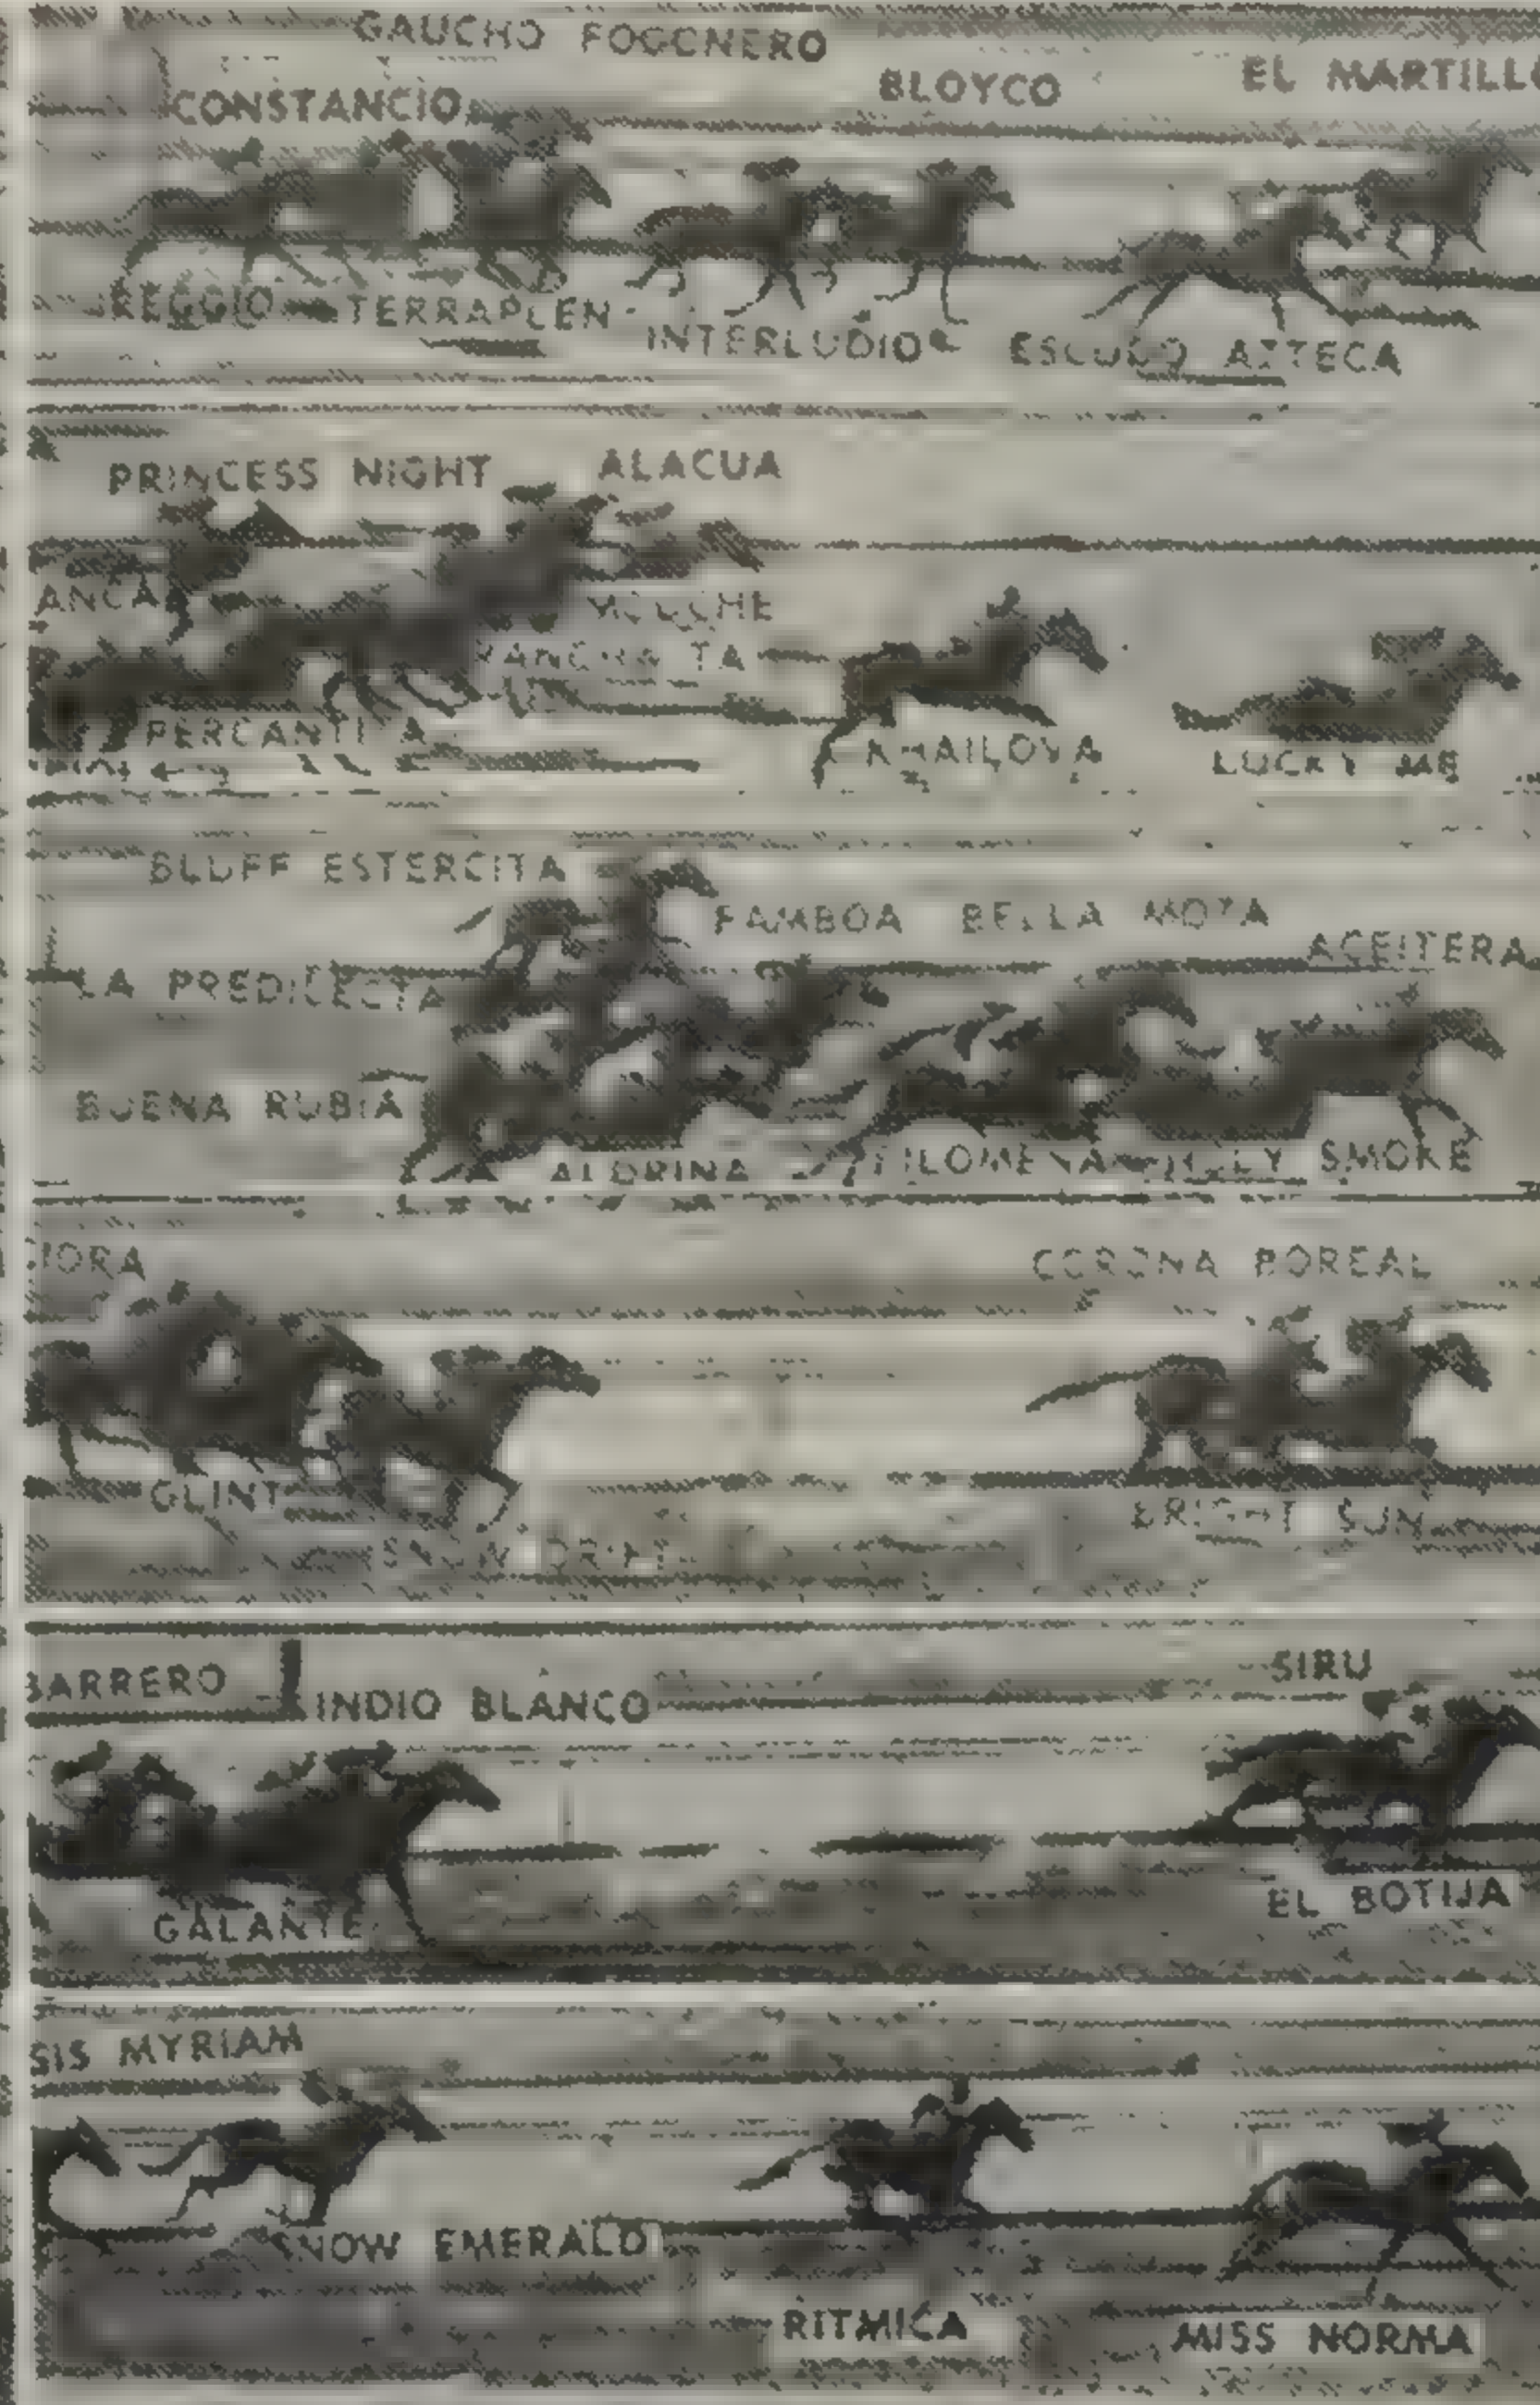 GAUCHO FOGONERO
BLOYCO
EL MARTILLO
CONSTANCIO
REGGIO TERRAPLEN
INTERLUDIO
ESCUDO AZTECA
PRINCESS NIGHT
ALACUA
PERCANTINA
LUCKY ME
BLUFF ESTERCITA
FAMBOA BELLA MOZA
ACEITERA
LA PREDILECTA
BUENA RUBIA
ALDRINA
FILOMENA
SMOKE
CORONA BOREAL
GLINT
BRIGHT SUN
SNOW DRIFT
BARRERO
INDIO BLANCO
SIRU
GALANTE
EL BOTIJA
SIS MYRIAM
SNOW EMERALD
RITMICA
MISS NORMA